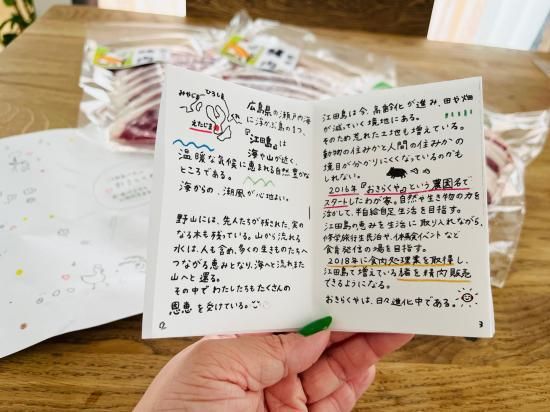 みやじま ひろしま
えたじま
広島県の瀬戸内海
に浮かぶ島の1つ、
『江田島』は
海や山が近く、
温暖な気候に恵まれる自然豊かな
ところである。
海からの、潮風が心地よい。
野山には、先人たちが残された、実の
なる木も残っている。山から流れる
水は、人も含め、多くの生きものたちへ
つながる恵みとなり、海へと流れまた
山へと還る。
その中でわたしたちもたくさんの
恩恵を受けている。
2
江田島は今、高齢化が進み、田や畑
が減っていく境地にある。
そのため荒れた土地も増えている。
動物の住みかと人間の住みかへの
境目が分かりにくくなっているのかも
しれない。
2016年『おきらくや』という農園名で
スタートしたわが家。自然や生き物の力を
活かして、半自給自足生活を目指す。
江田島の恵みを生活に取り入れながら、
修学旅行生民泊や、体験イベントなど
食を発信の場を目指す。
2018年に食肉処理業を取得し、
江田島で増えている猪を精肉販売
できるようになる。
おきらくやは、日々進化中である。
3